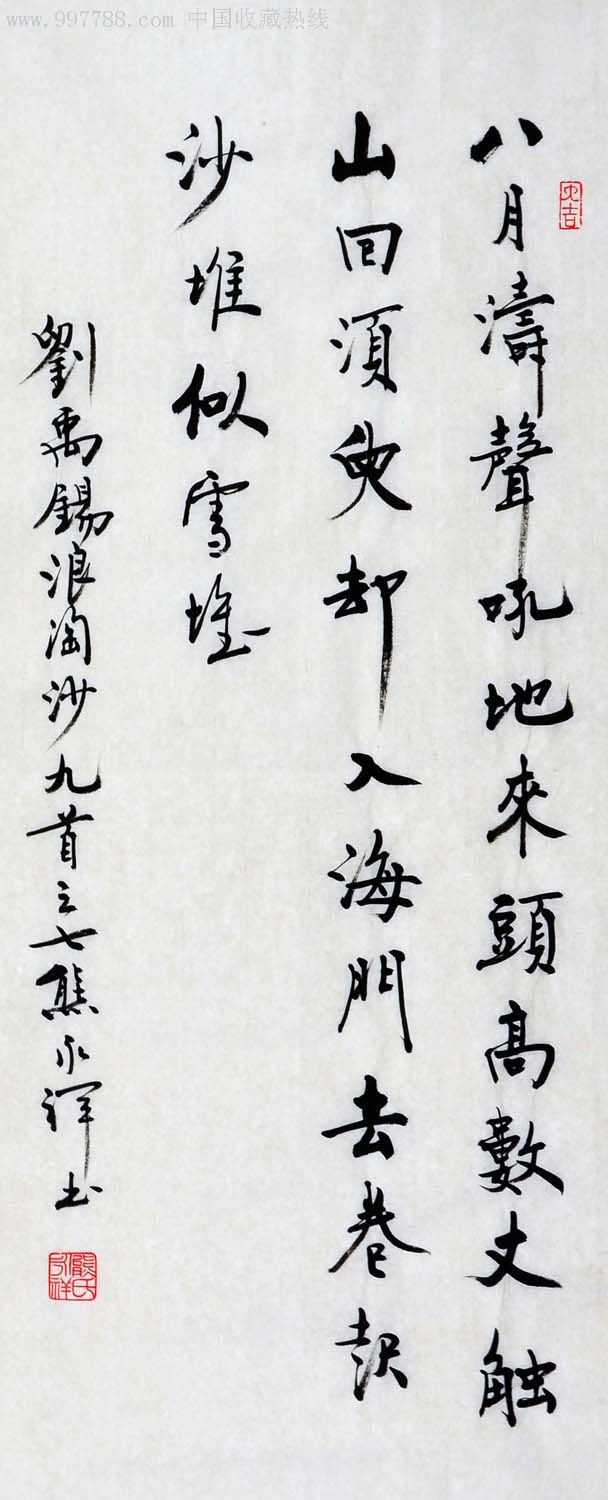 www.997788.com 中国收藏热线
大吉
八月濤聲吼地來頭高數丈触
山回須臾却入海門去卷起
沙堆似雪堆
劉禹錫浪淘沙九首之七熊永祥书